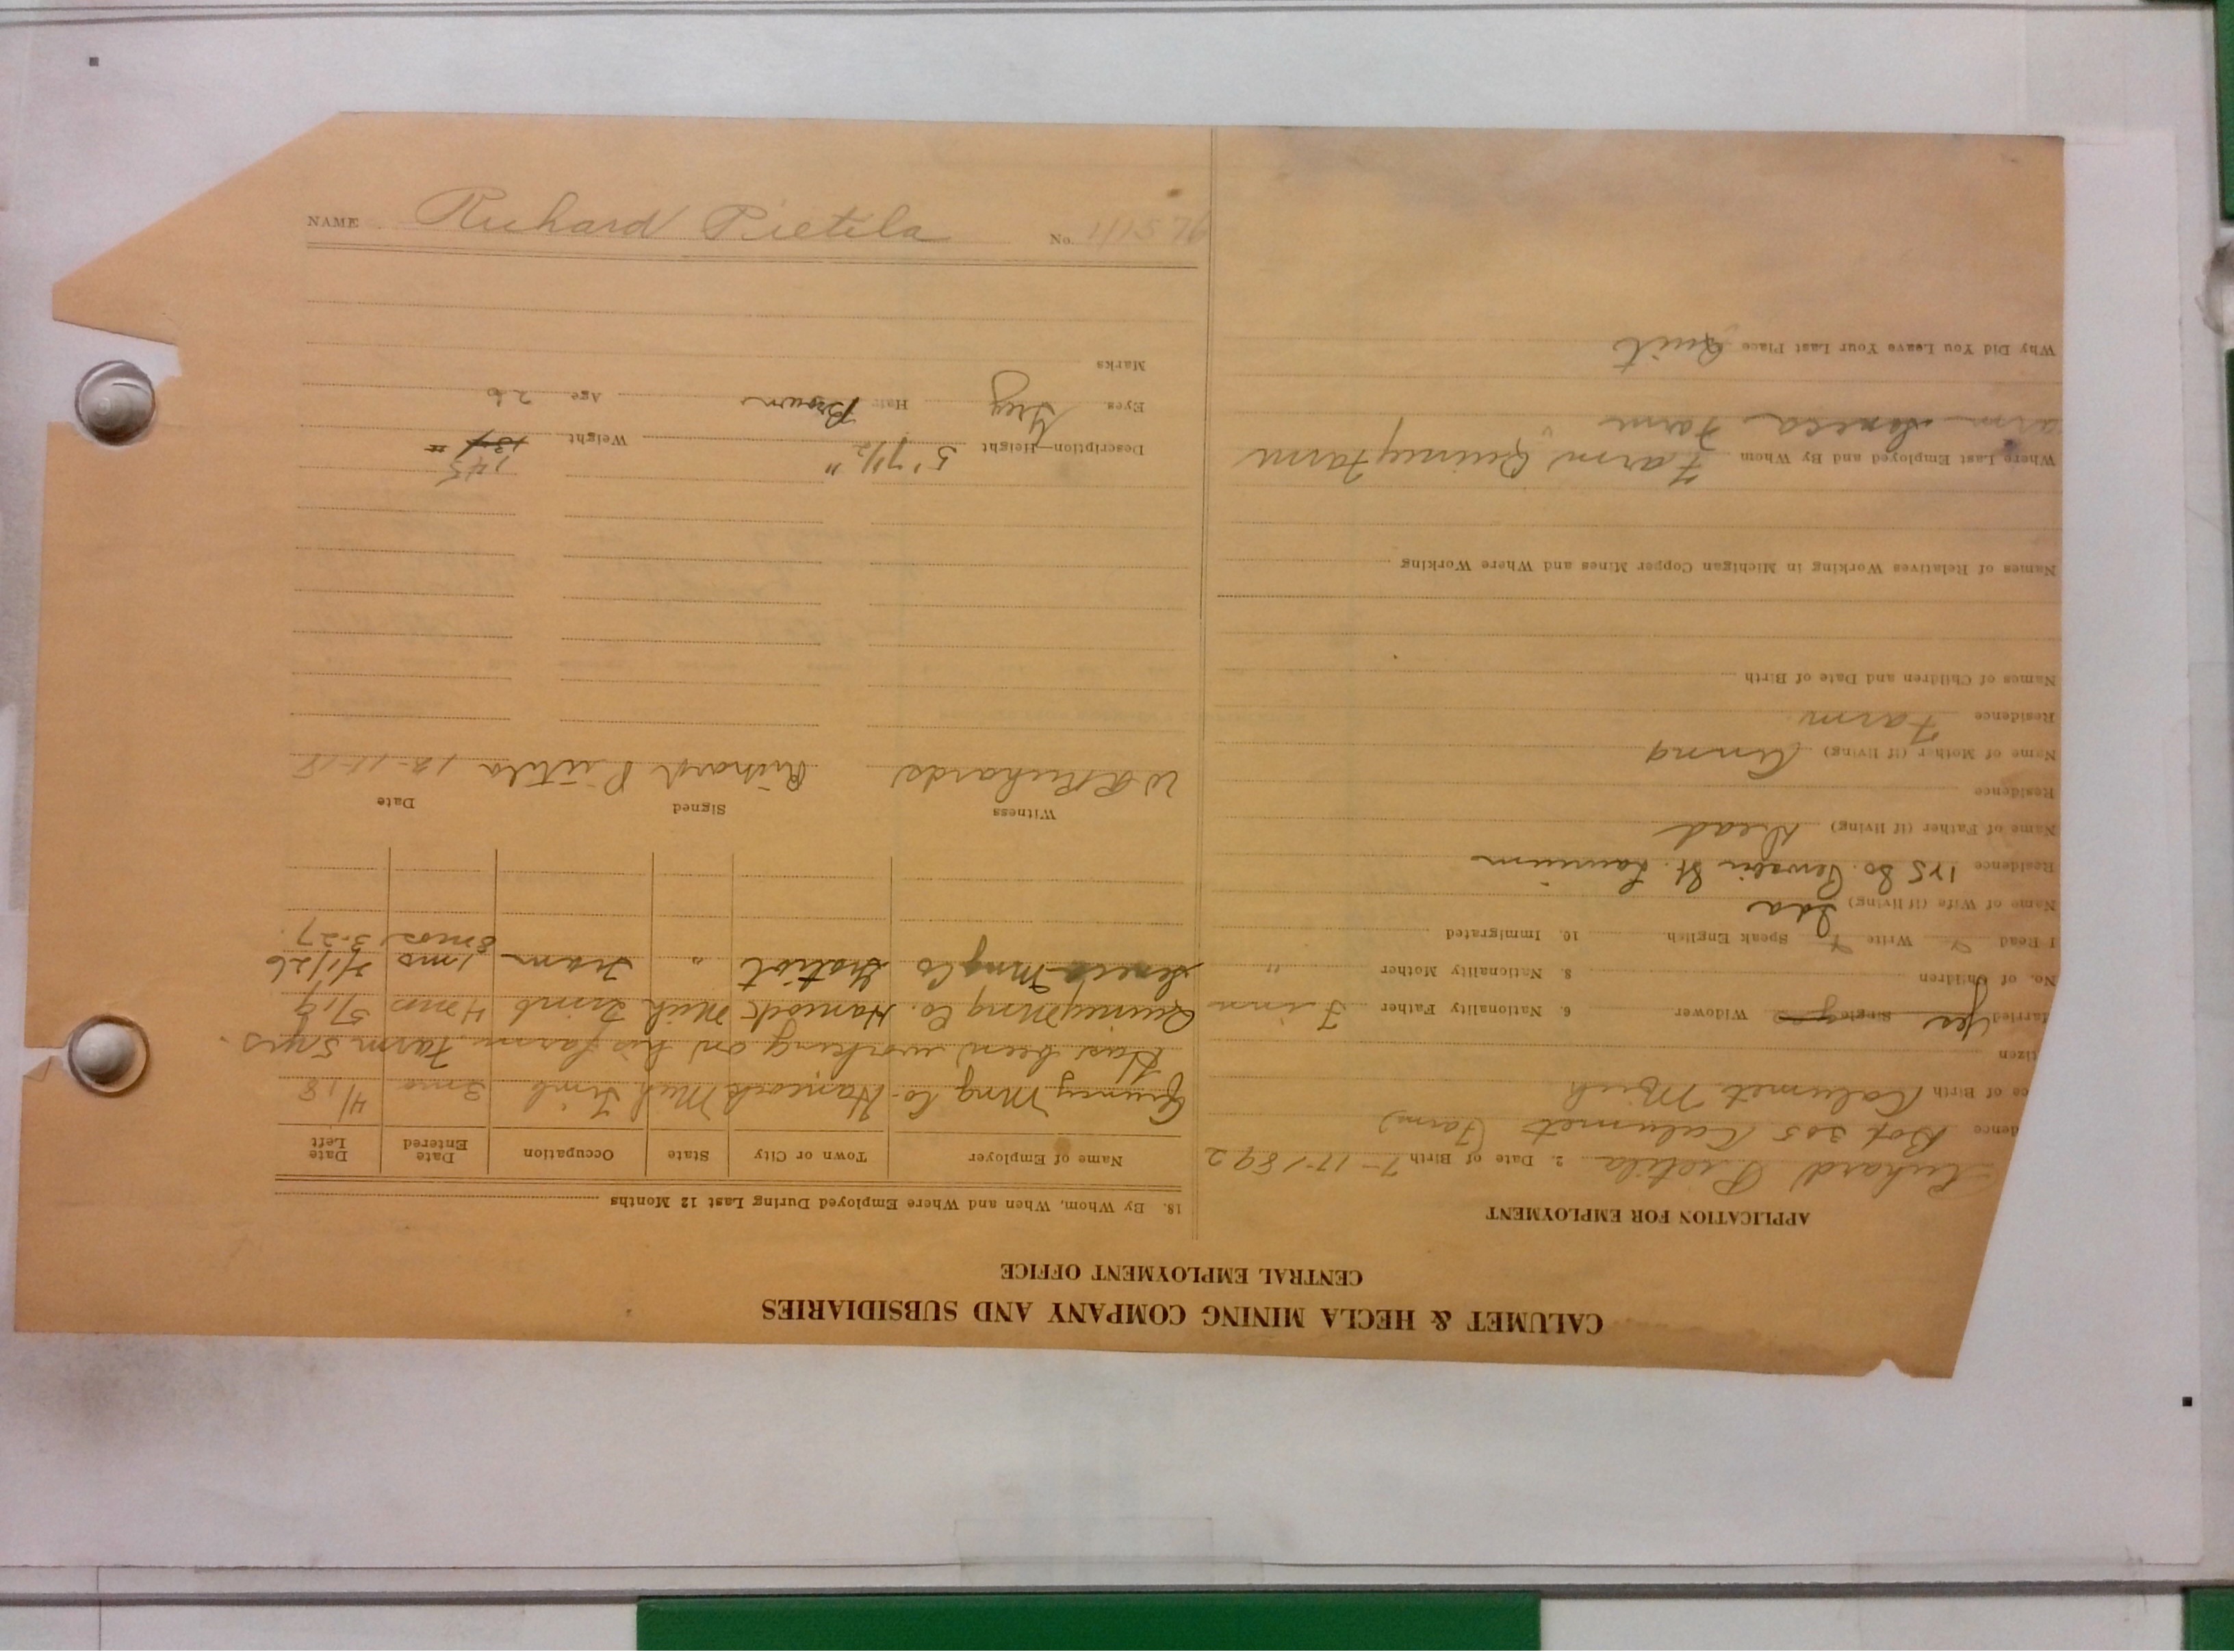 NAME Richard Pietila No. 111576
CALUMET & HECLA MINING COMPANY AND SUBSIDIARIES
CENTRAL EMPLOYMENT OFFICE
APPLICATION FOR EMPLOYMENT
Richard Pietila 2. Date of Birth 7-17-1892
dence Box 305 Calumet (Farm)
ce of Birth Calumet Mich
tizen
Married Yes Single Widower 6. Nationality Father Finn
No. of Children 8. Nationality Mother "
I Read Write Speak English 10. Immigrated
Name of Wife (if living) Ida
Residence 125 So. Pewabic St. Laurium
Name of Father (if living) Dead
Residence
Name of Mother (if living) Anna
Residence Farm
Names of Children and Date of Birth
Names of Relatives Working in Michigan Copper Mines and Where Working
Where Last Employed and By Whom Farm Quincy Farm
arm Seneca Farm
Why Did You Leave Your Last Place Quit
18. By Whom, When and Where Employed During Last 12 Months
Name of Employer Town or City State Occupation Date Entered Date Left
Quincy Mng Co. Hancock Mich Timb 3mo 4/18
Has been working on his farm Farm 5 yrs.
Quincy Mng Co. Hancock Mich Timb 4 mos 5/19
Seneca Mng Co Gratiot " Tram 1 mo 7/1/26
8 mos 3-27.
Witness Signed Date
W A Richards Richard Pietila 12-11-18
145
Description—Height 5' 7 1/2" Weight 134 "
Eyes Grey Hair Brown Age 26
Marks